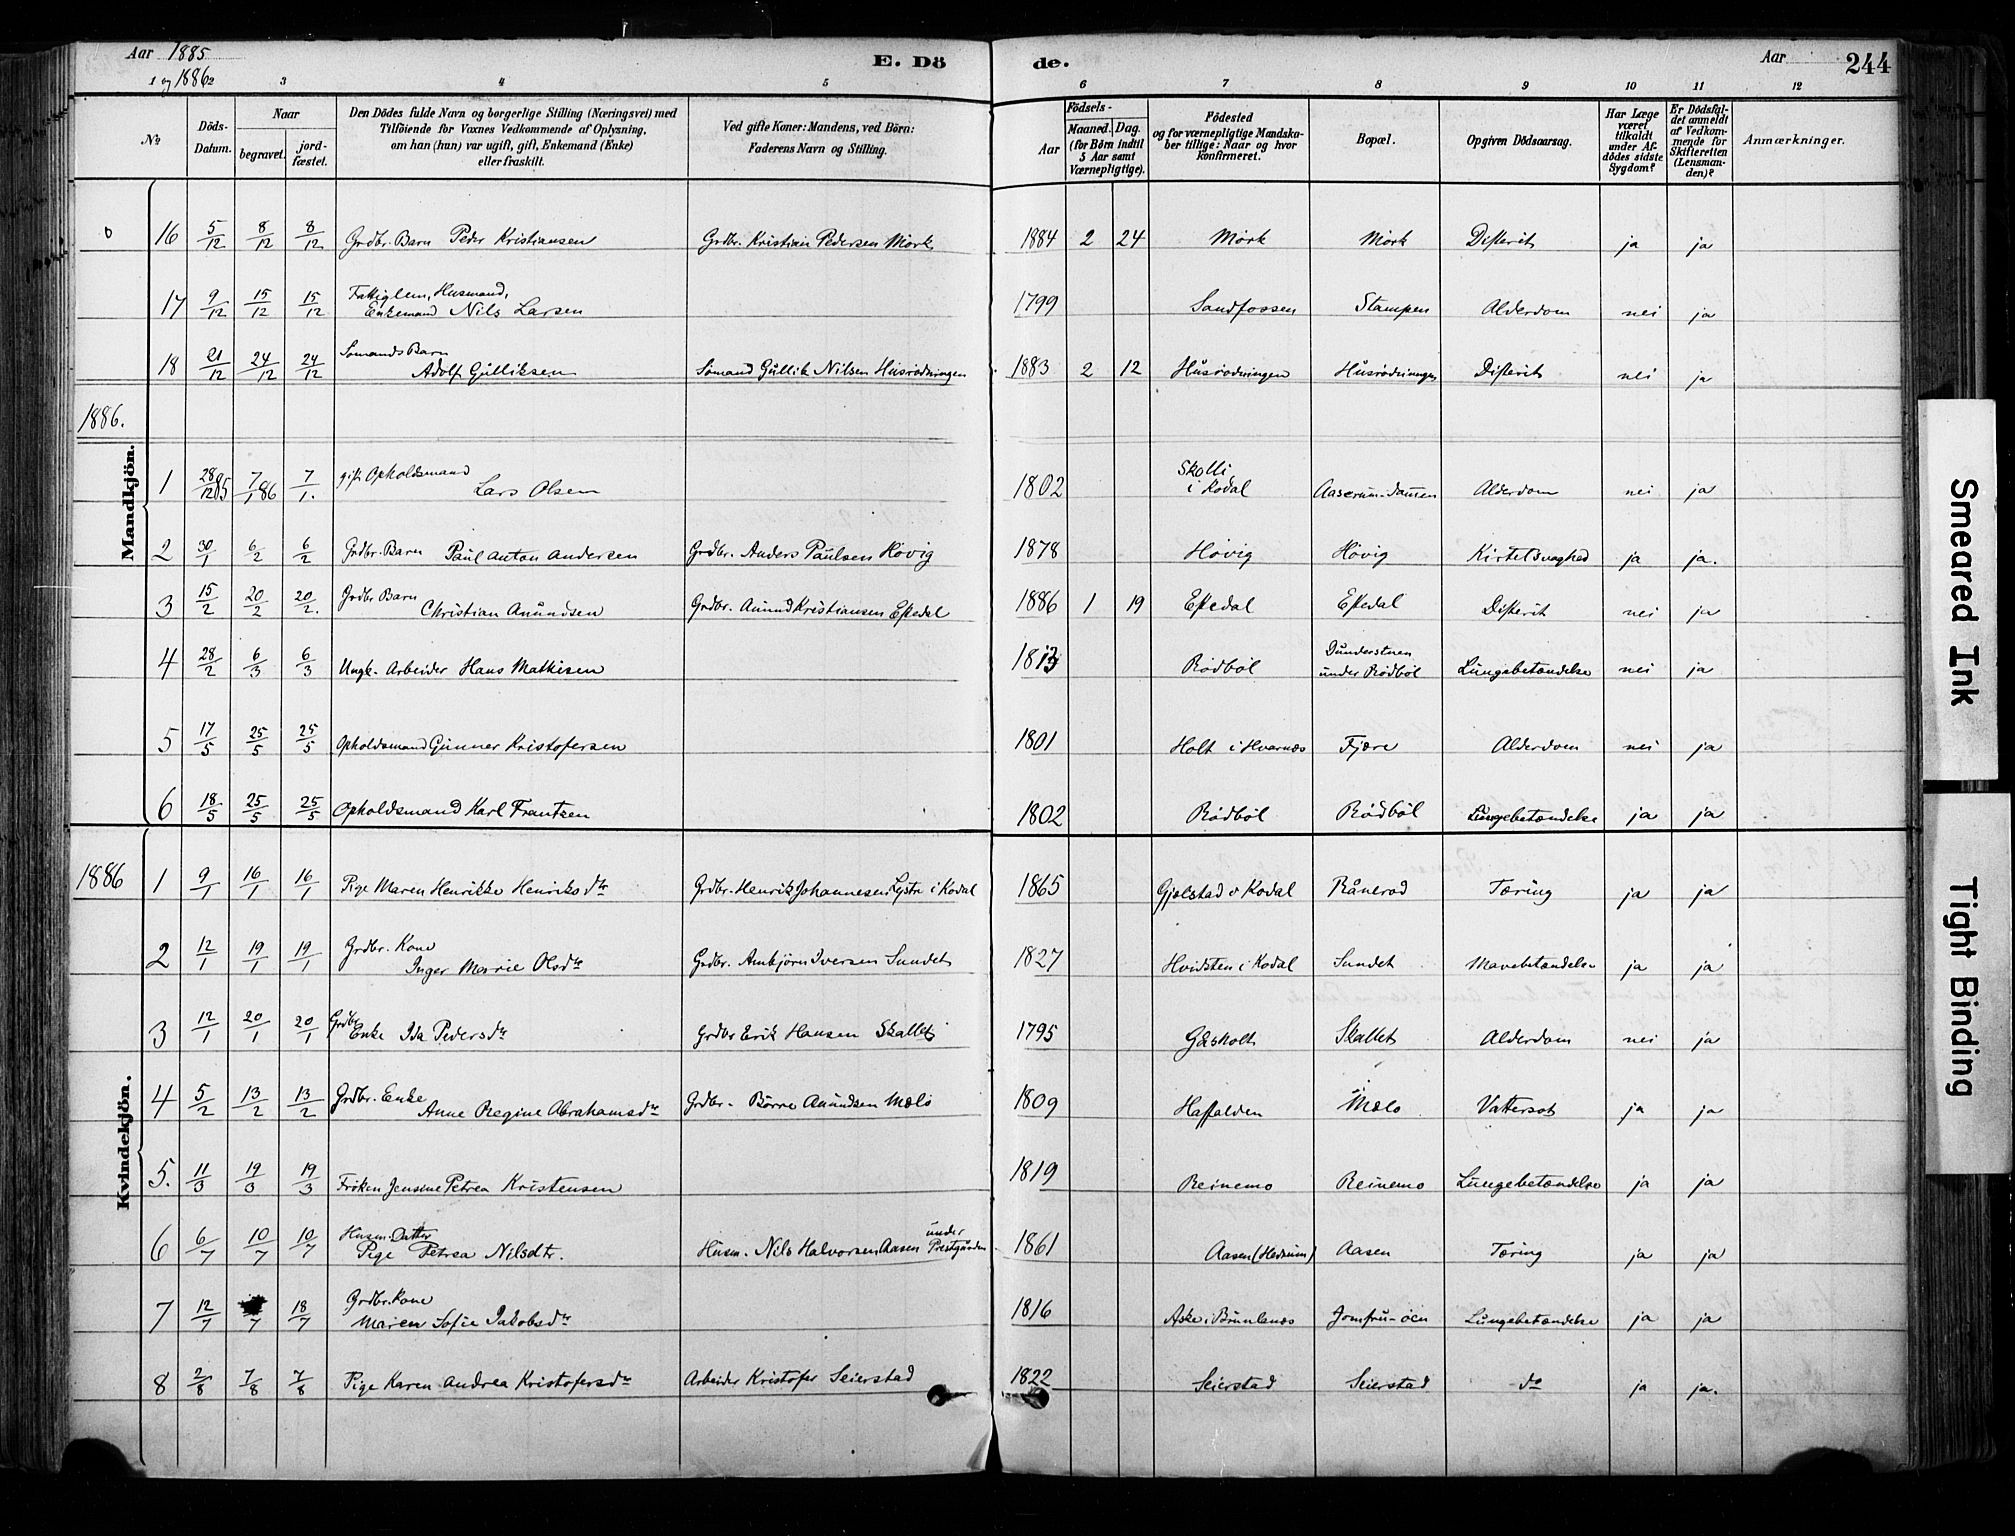 Aar 1885
og 1886
E. Dö de.
Aar 244
1 2 3 4 5 6 7 8 9 10 11 12
No. Döds-Datum. Naar begravet. jordfæstet. Den Dödes fulde Navn og borgerlige Stilling (Næringsvei) med Tilföiende for Voxnes Vedkommende af Oplysning, om han (hun) var ugift, gift, Enkemand (Enke) eller fraskilt. Ved gifte Koner: Mandens, ved Börn: Faderens Navn og Stilling. Födsels- Aar Maaned. Dag. (for Börn indtil 5 Aar samt Værnepligtige). Födested og for værnepligtige Mandskaber tillige: Naar og hvor konfirmeret. Bopæl. Opgiven Dödsaarsag. Har Læge været tilkaldt under Afdödes sidste Sygdom? Er Dödsfaldet anmeldt af Vedkommende for Skifteretten (Lensmanden)? Anmærkninger.
16 5/12 8/12 8/12 Grdbr. Barn Peder Kristiansen Grdbr. Kristian Pedersen Mørk 1884 2 24 Mørk Mørk Difterit ja ja
17 9/12 15/12 15/12 Fattiglem, Husmand, Enkemand Nils Larsen 1799 Sandfossen Stampen Alderdom nei ja
18 21/12 24/12 24/12 Sømands Barn Adolf Gulliksen Sømand Gullik Nilsen Husrødningen 1883 2 12 Husrødningen Husrødningen Difterit nei ja
1886.
Mandkjön.
1 28/12 85 7/1 86 7/1. gift Opholdsmand Lars Olsen 1802 Skolli i Kodal Aaserum-dammen Alderdom nei ja
2 30/1 6/2 6/2 Grdbr. Barn Paul Anton Andersen Grdbr. Anders Paulsen Høvig 1878 Høvig Høvig Kirtelsvaghed ja ja.
3 15/2 20/2 20/2. Grdbr Barn Christian Amundsen Grdbr. Amund Kristiansen Eftedal 1886 1 19 Eftedal Eftedal Difterit nei ja
4 28/2 6/3 6/3 Ungk. Arbeider Hans Mathisen 1813 Rødbøl under Rødbøl Lungebetændelse nei ja
5 17/5 25/5 25/5 Opholdsmand Gunner Kristofersen 1801 Holt i Hvarnes Fjære Alderdom nei ja
6 18/5 25/5 25/5 Opholdsmand Karl Frantsen 1802 Rødbøl Rødbøl Lungebetændelse ja ja
1886
Kvindekjön.
1 9/1 16/1 16/1 Pige Maren Henrikke Henriksdtr Grdbr. Henrik Johannesen Lystr i Kodal 1865 Gjelstad i Kodal Rånerød Tæring ja ja
2 12/1 19/1 19/1 Grdbr. Kone Inger Marie Olsdtr Grdbr. Arnbjørn Iversen Sundet 1827 Hvidsten i Kodal Sundet Mavebetændelse ja ja
3 12/1 20/1 20/1 Grdbr Enke Ida Pedersdtr Grdbr Erik Hansen Skallet 1795 Gåsholt Skallet Alderdom nei ja
4 5/2 13/2 13/2 Grdbr. Enke Anne Regine Abrahamsdtr Grdbr. Børre Amundsen Mælø 1809 Haffalden Mælø Vattersot ja ja
5. 11/3 19/3 19/3 Frøken Jensine Petrea Kristensen 1819 Reinemo Reinemo Lungebetændelse ja ja
6 6/7 10/7 10/7 Husm. Datter Pige Petrea Nilsdtr. Husm. Nils Halvorsen Aasen under Prestgården 1861 Aasen (Hedrum) Aasen Tæring ja ja
7 12/7 /7 18/7 Grdbr. Kone Maren Sofie Jakobsdtr 1816 Aske i Brunlanes Jomfru-øen Lungebetændelse ja ja
8 2/8 7/8 7/8 Pige Karen Andrea Kristofersdtr Arbeider Kristofer Seierstad 1822 Seierstad Seierstad do ja ja.
Smeared Ink
Tight Binding